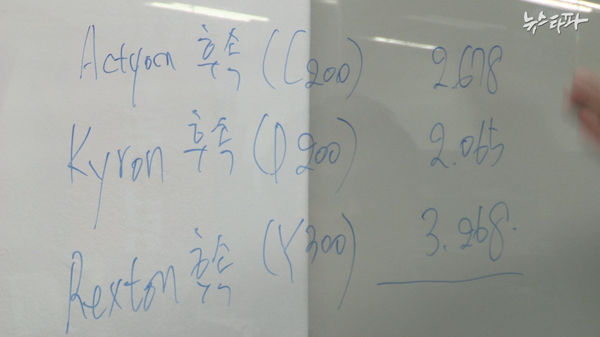 뉴스타파
Actyon 후속 (C200) 2.678
Kyron 후속 (D200) 2.065
Rexton 후속 (Y300) 3.268.